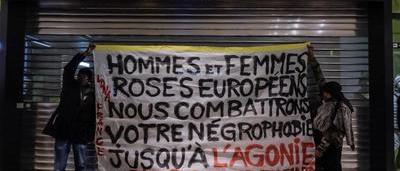 HOMMES ET FEMMES
ROSES EUROPÉENS
NOUS COMBATTRONS
VOTRE NÉGROPHOBIE
JUSQU'À L'AGONIE